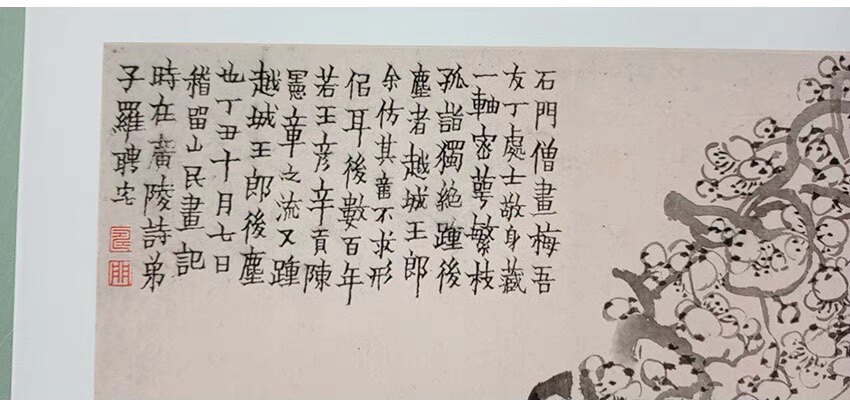 石門僧畫梅吾
友丁處士敬身藏
一軸密萼繁枝
孤詣獨絕踵後
塵者越城王郎
余仿其意不求形
侶耳後數百年
若王彥辛貢陳
憲章之流又踵
越城王郎後塵
也丁丑十月七日
稽留山民畫記
時在廣陵詩弟
子羅聘宅